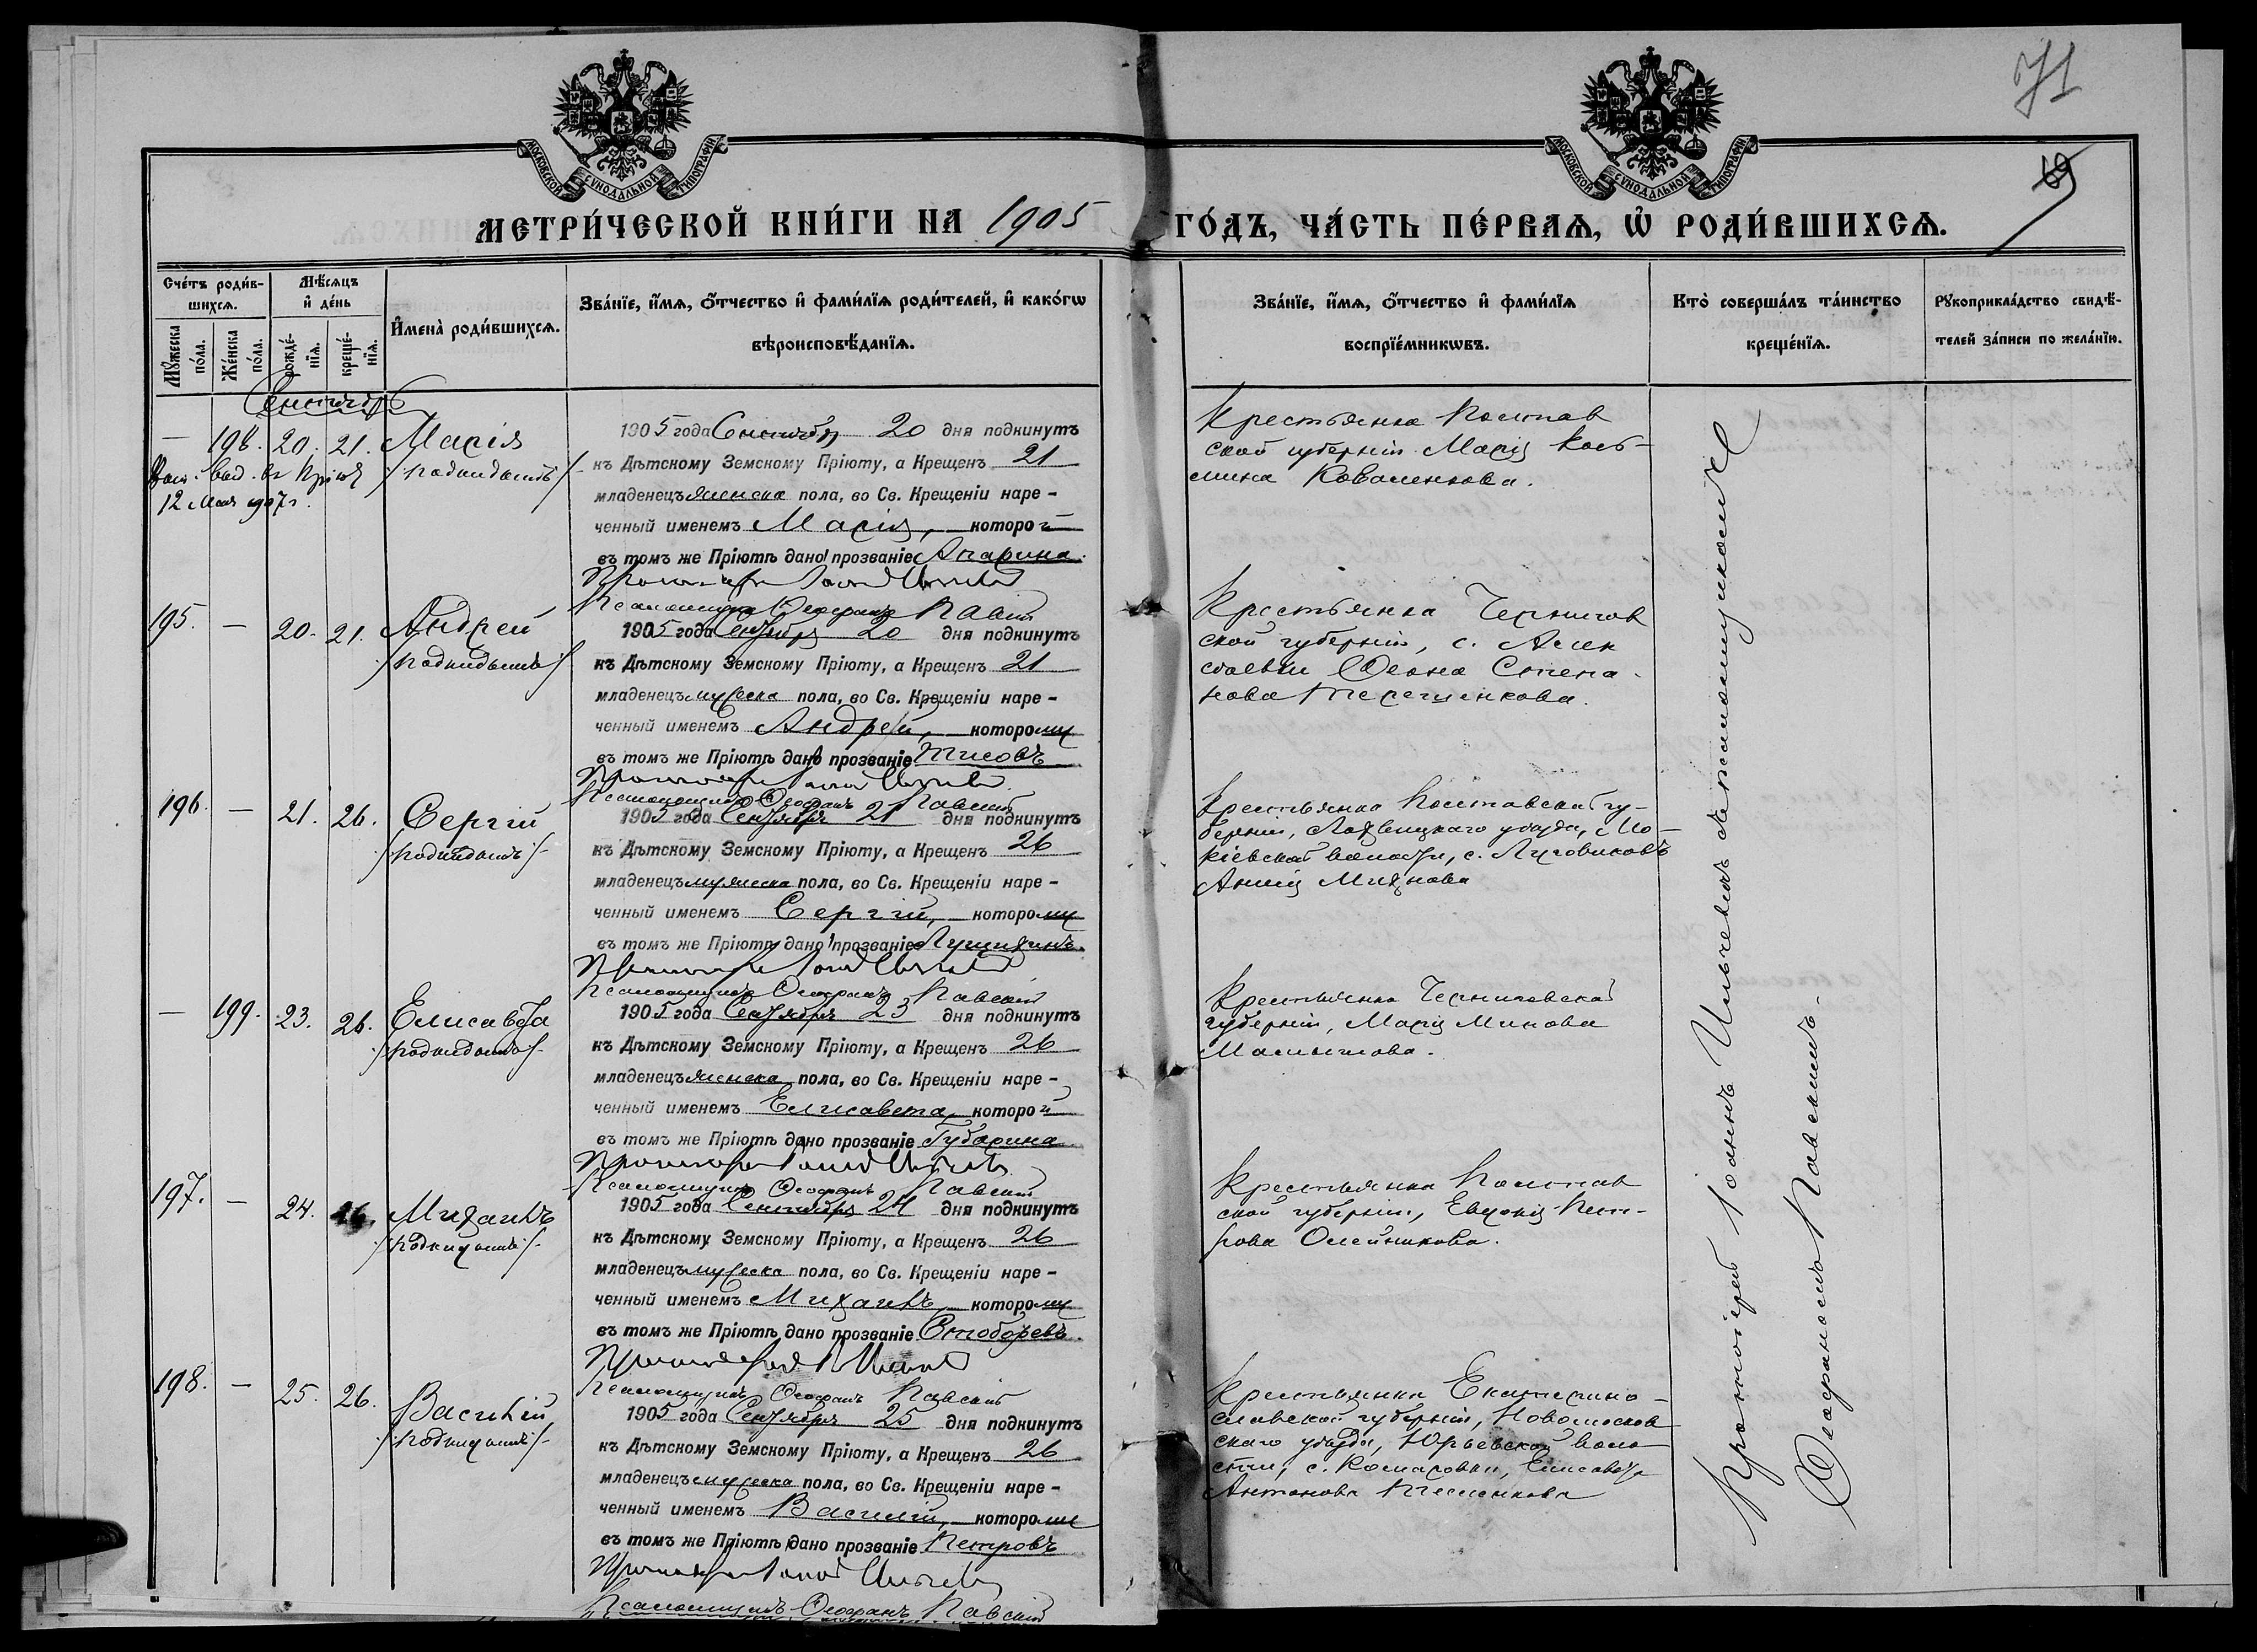 71
69
МОСКОВСКОЙ СѴНОДАЛЬНОЙ ТИПОГРАФІИ
МОСКОВСКОЙ СѴНОДАЛЬНОЙ ТИПОГРАФІИ
МЕТРИ́ЧЕСКОЙ КНИ́ГИ НА 1905 ГО́ДЪ, ЧА́СТЬ ПЕ́РВАѦ, Ѡ҆ РОДИ́ВШИХСѦ.
Сче́тъ роди́вшихсѧ.
Мꙋ́жеска по́ла.
Же́нска по́ла.
Мѣ́сѧцъ и҆ де́нь
рожде́нїѧ.
креще́нїѧ.
И҆мена̀ роди́вшихсѧ.
Зва́нїе, и҆́мѧ, ѻ҆́тчество и҆ фами́лїѧ роди́телей, и҆ како́гѡ
вѣроисповѣ́данїѧ.
Зва́нїе, и҆́мѧ, ѻ҆́тчество и҆ фами́лїѧ
воспрїе́мникѡвъ.
Кто̀ соверша́лъ та́инство
креще́нїѧ.
Рꙋкоприкла́дство свидѣ́-
телей за́писи по жела́нїю.
Сентябрь
— 198. 20. 21. Марія
/подкидышъ/
12 Мая 1907 г.
1905 года Сентября 20 дня подкинутъ
къ Дѣтскому Земскому Пріюту, а Крещенъ 21
младенецъ женска пола, во Св. Крещеніи наре-
ченный именемъ Марія, которой
въ томъ же Пріютѣ дано прозваніе Апарина.
Псаломщикъ Ѳеофанъ Павскій
Крестьянка Полтав
ской губерніи Марія Козь-
мина Коваленкова.
195. — 20. 21. Андрей
/подкидышъ/
1905 года Сентября 20 дня подкинутъ
къ Дѣтскому Земскому Пріюту, а Крещенъ 21
младенецъ мужеска пола, во Св. Крещеніи наре-
ченный именемъ Андрей, которому
въ томъ же Пріютѣ дано прозваніе Тисовъ
Псаломщикъ Ѳеофанъ Павскій
Крестьянка Чернигов
ской губерніи, с. Алек
сѣевки Ѳеона Степа-
нова Терещенкова.
196. — 21. 26. Сергій
/подкидышъ/
1905 года Сентября 21 дня подкинутъ
къ Дѣтскому Земскому Пріюту, а Крещенъ 26
младенецъ мужеска пола, во Св. Крещеніи наре-
ченный именемъ Сергій, которому
въ томъ же Пріютѣ дано прозваніе
Псаломщикъ Ѳеофанъ Павскій
Крестьянка Полтавской гу-
берніи, Лохвицкаго уѣзда,
волости, с. Луговиковъ
199. 23. 26. Елисавета
/подкидышъ/
1905 года Сентября 23 дня подкинутъ
къ Дѣтскому Земскому Пріюту, а Крещенъ 26
младенецъ женска пола, во Св. Крещеніи наре-
ченный именемъ Елисавета, которой
въ томъ же Пріютѣ дано прозваніе Губарина
Псаломщикъ Ѳеофанъ Павскій
Крестьянка Черниговской
губерніи, Марія Минова
197. — 24. 26. Михаилъ
/подкидышъ/
1905 года Сентября 24 дня подкинутъ
къ Дѣтскому Земскому Пріюту, а Крещенъ 26
младенецъ мужеска пола, во Св. Крещеніи наре-
ченный именемъ Михаилъ, которому
въ томъ же Пріютѣ дано прозваніе
Псаломщикъ Ѳеофанъ Павскій
Крестьянка Полтав
ской губерніи, Евдокія Пет-
рова Олейникова.
198. — 25. 26. Василій
/подкидышъ/
1905 года Сентября 25 дня подкинутъ
къ Дѣтскому Земскому Пріюту, а Крещенъ 26
младенецъ мужеска пола, во Св. Крещеніи наре-
ченный именемъ Василій, которому
въ томъ же Пріютѣ дано прозваніе Петровъ
Псаломщикъ Ѳеофанъ Павскій
Крестьянка Екатерино-
славской губерніи, Новомосков
скаго уѣзда, Юрьевской воло-
сти, с. Комаровки, Елисавета
Антонова
Протоіерей Іоаннъ Ильичевъ съ псаломщикомъ
Ѳеофаномъ Павскимъ.